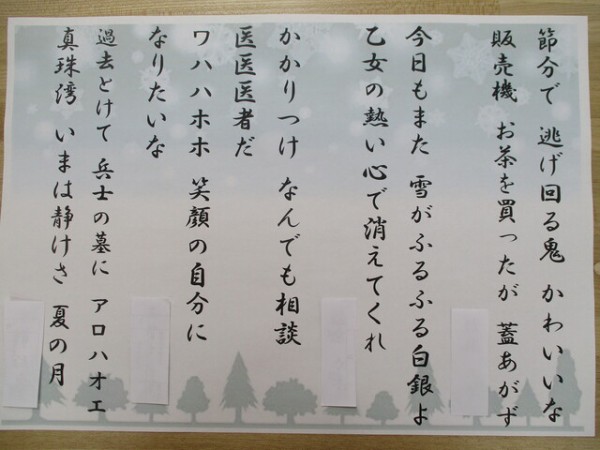 節分で 逃げ回る鬼 かわいいな
販売機 お茶を買ったが 蓋あがず
今日もまた 雪がふるふる白銀よ
乙女の熱い心で消えてくれ
かかりつけ なんでも相談
医医医者だ
ワハハホホ 笑顔の自分に
なりたいな
過去とけて 兵士の墓に アロハオエ
真珠湾 いまは静けさ 夏の月